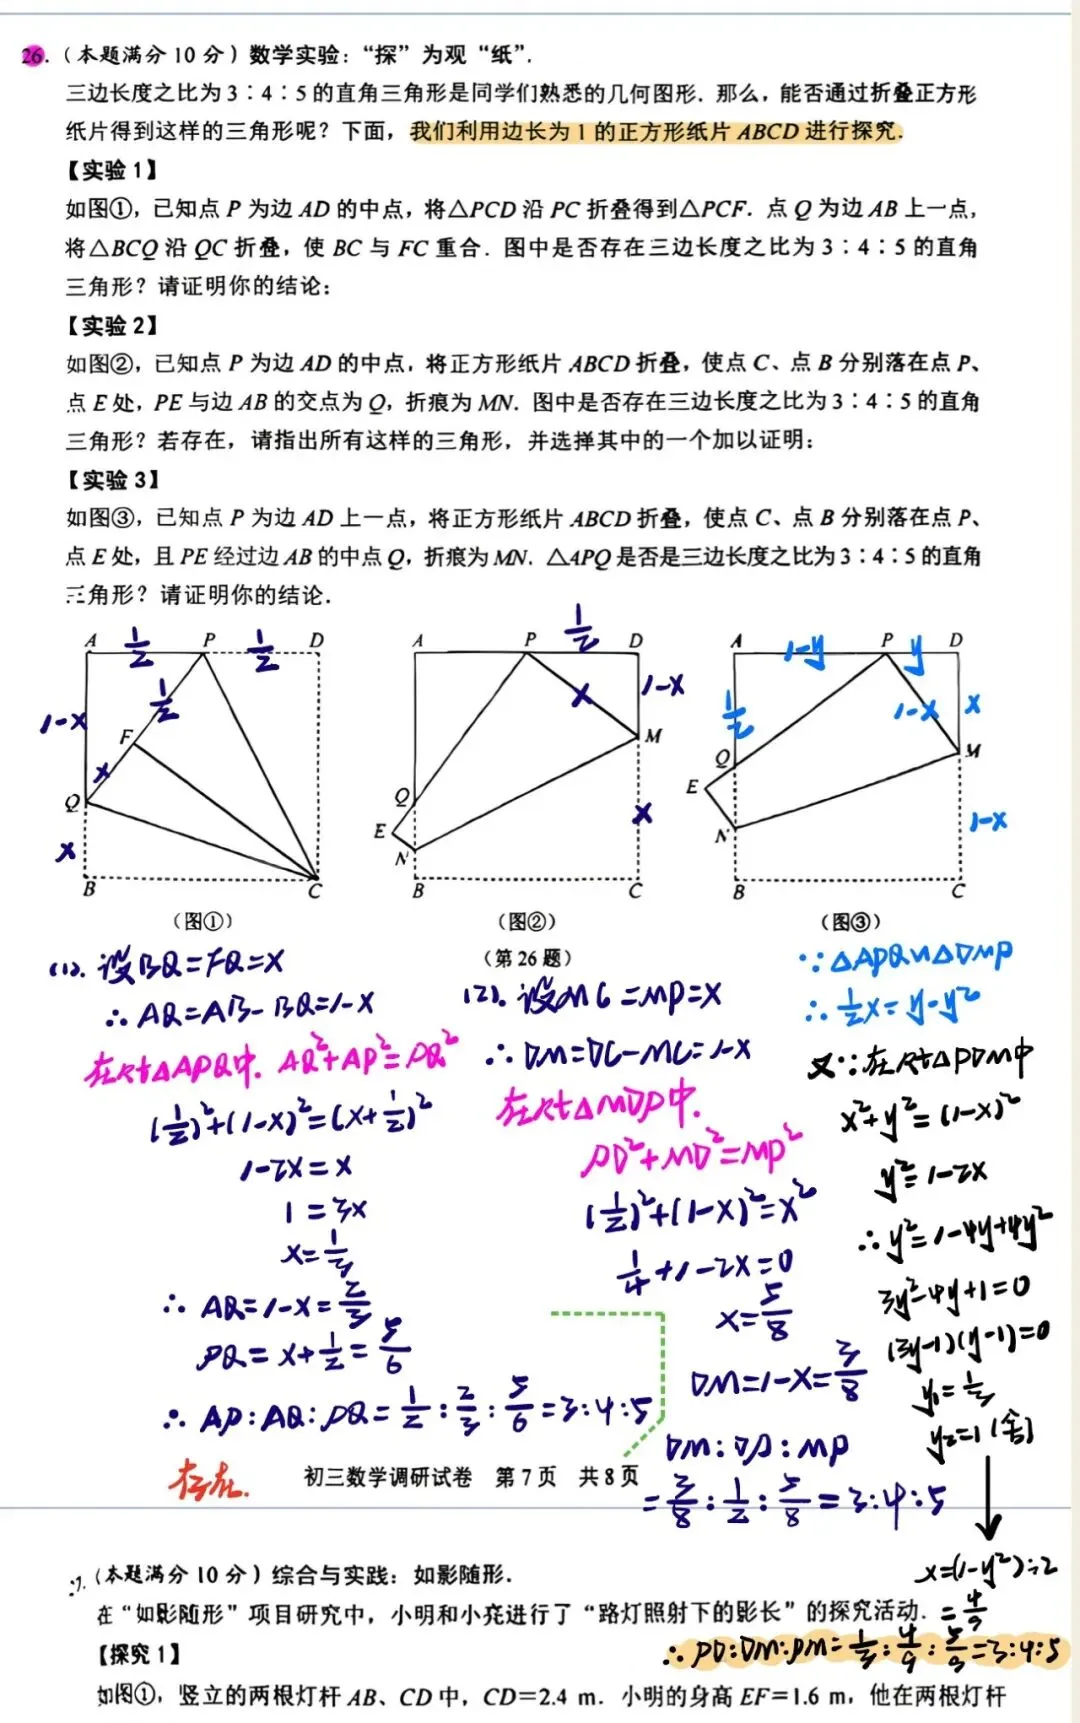 26.（本题满分 10 分）数学实验：“探”为观“纸”.
三边长度之比为 3∶4∶5 的直角三角形是同学们熟悉的几何图形. 那么，能否通过折叠正方形
纸片得到这样的三角形呢？下面，我们利用边长为 1 的正方形纸片 ABCD 进行探究.
【实验 1】
如图①，已知点 P 为边 AD 的中点，将△PCD 沿 PC 折叠得到△PCF. 点 Q 为边 AB 上一点，
将△BCQ 沿 QC 折叠，使 BC 与 FC 重合. 图中是否存在三边长度之比为 3∶4∶5 的直角
三角形？请证明你的结论：
【实验 2】
如图②，已知点 P 为边 AD 的中点，将正方形纸片 ABCD 折叠，使点 C、点 B 分别落在点 P、
点 E 处，PE 与边 AB 的交点为 Q，折痕为 MN. 图中是否存在三边长度之比为 3∶4∶5 的直角
三角形？若存在，请指出所有这样的三角形，并选择其中的一个加以证明：
【实验 3】
如图③，已知点 P 为边 AD 上一点，将正方形纸片 ABCD 折叠，使点 C、点 B 分别落在点 P、
点 E 处，且 PE 经过边 AB 的中点 Q，折痕为 MN. △APQ 是否是三边长度之比为 3∶4∶5 的直角
三角形？请证明你的结论.
A 1/2 P 1/2 D
1/2
1-x
F
x
Q
x
B C
（图①）
A P 1/2 D
x 1-x
M
Q
E x
N
B C
（图②）
A 1-y P y D
1/2 1-x x
M
Q
E
N 1-x
B C
（图③）
（第 26 题）
(1). 设BQ=FQ=x
∴ AQ=AB-BQ=1-x
在Rt△APQ中. AQ²+AP²=PQ²
(1/2)²+(1-x)²=(x+1/2)²
1-2x=x
1=3x
x=1/3
∴ AQ=1-x=2/3
PQ=x+1/2=5/6
∴ AP:AQ:PQ=1/2:2/3:5/6=3:4:5
存在.
(2). 设MC=MP=x
∴ DM=DC-MC=1-x
在Rt△MDP中.
PD²+MD²=MP²
(1/2)²+(1-x)²=x²
1/4+1-2x=0
x=5/8
DM=1-x=3/8
DM:DP:MP
=3/8:1/2:5/8=3:4:5
∵△APQ∽△DMP
∴ 1/2x=y-y²
又∵在Rt△PDM中
x²+y²=(1-x)²
y²=1-2x
∴y²=1-4y+4y²
3y²-4y+1=0
(3y-1)(y-1)=0
y₁=1/3
y₂=1(舍)
x=(1-y²)÷2
=4/9
∴PD:DM:PM=1/3:4/9:5/9=3:4:5
初三数学调研试卷 第 7 页 共 8 页
7.（本题满分 10 分）综合与实践：如影随形.
在“如影随形”项目研究中，小明和小亮进行了“路灯照射下的影长”的探究活动.
【探究 1】
如图①，竖立的两根灯杆 AB、CD 中，CD=2.4 m. 小明的身高 EF=1.6 m，他在两根灯杆